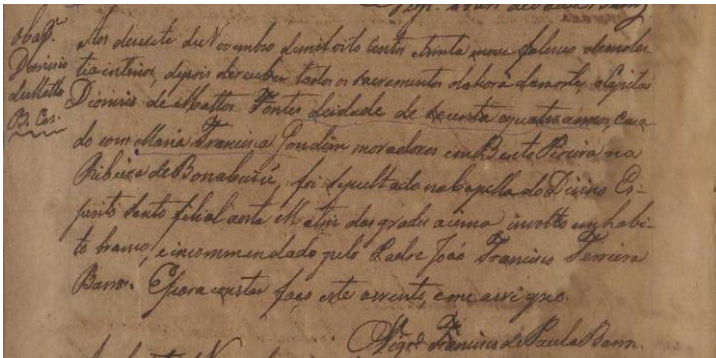 o Capm.
Dionisio
de Mattos
B. Cas.
Aos desesete de Novembro de mil oito centos etrinta enove faleceo demoles
tia interior, depois de receber todos os sacramentos da hora da morte, o Capitão
Dionisio de Mattos Fontes deidade de secenta equatro annos, casa
do com Maria Francisca Gondim moradores em Bento Pereira na
Ribeira de Banabuiú, foi sepultado na Capella do Divino Es-
pirito Santo filial desta Matriz das grades acima involto em habi-
to branco, e incommendado pelo Padre João Francisco Ferreira
Barros. E para constar faço este assento, e me assigno.
O Vigro. Francisco de Paula Barros.